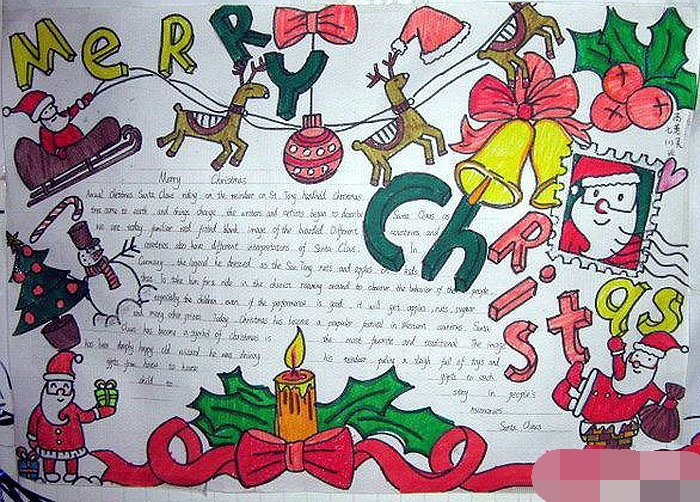 MeRRY
ChRist as
Merry Christmas
Annual Christmas Santa Claus riding on the reindeer on St. Tong hundred Christmas
time come to with and drugs change the writers and artists began to describe Santa Claus as
we are today familiar red blank image of the bearded Different countries and
countries also have different interpretations of Santa Claus. In
Germany the legend he dressed as the Sac Tong nuts and apples on kids
than. To take him for a ride in the chariot roaming around to observe the behavior of these people
especially the children even if the performance is good it will get apples nuts sugar
and many other prizes Today Christmas has become a popular festival in Western Santa
has become a symbol of Christmas is the most favorite and traditional. The image
has been deeply happy old wizard he was driving his reindeer pulling a sleigh full of toys and
gifts from house to house gifts to each
child to story in people's
memories
Santa Claus